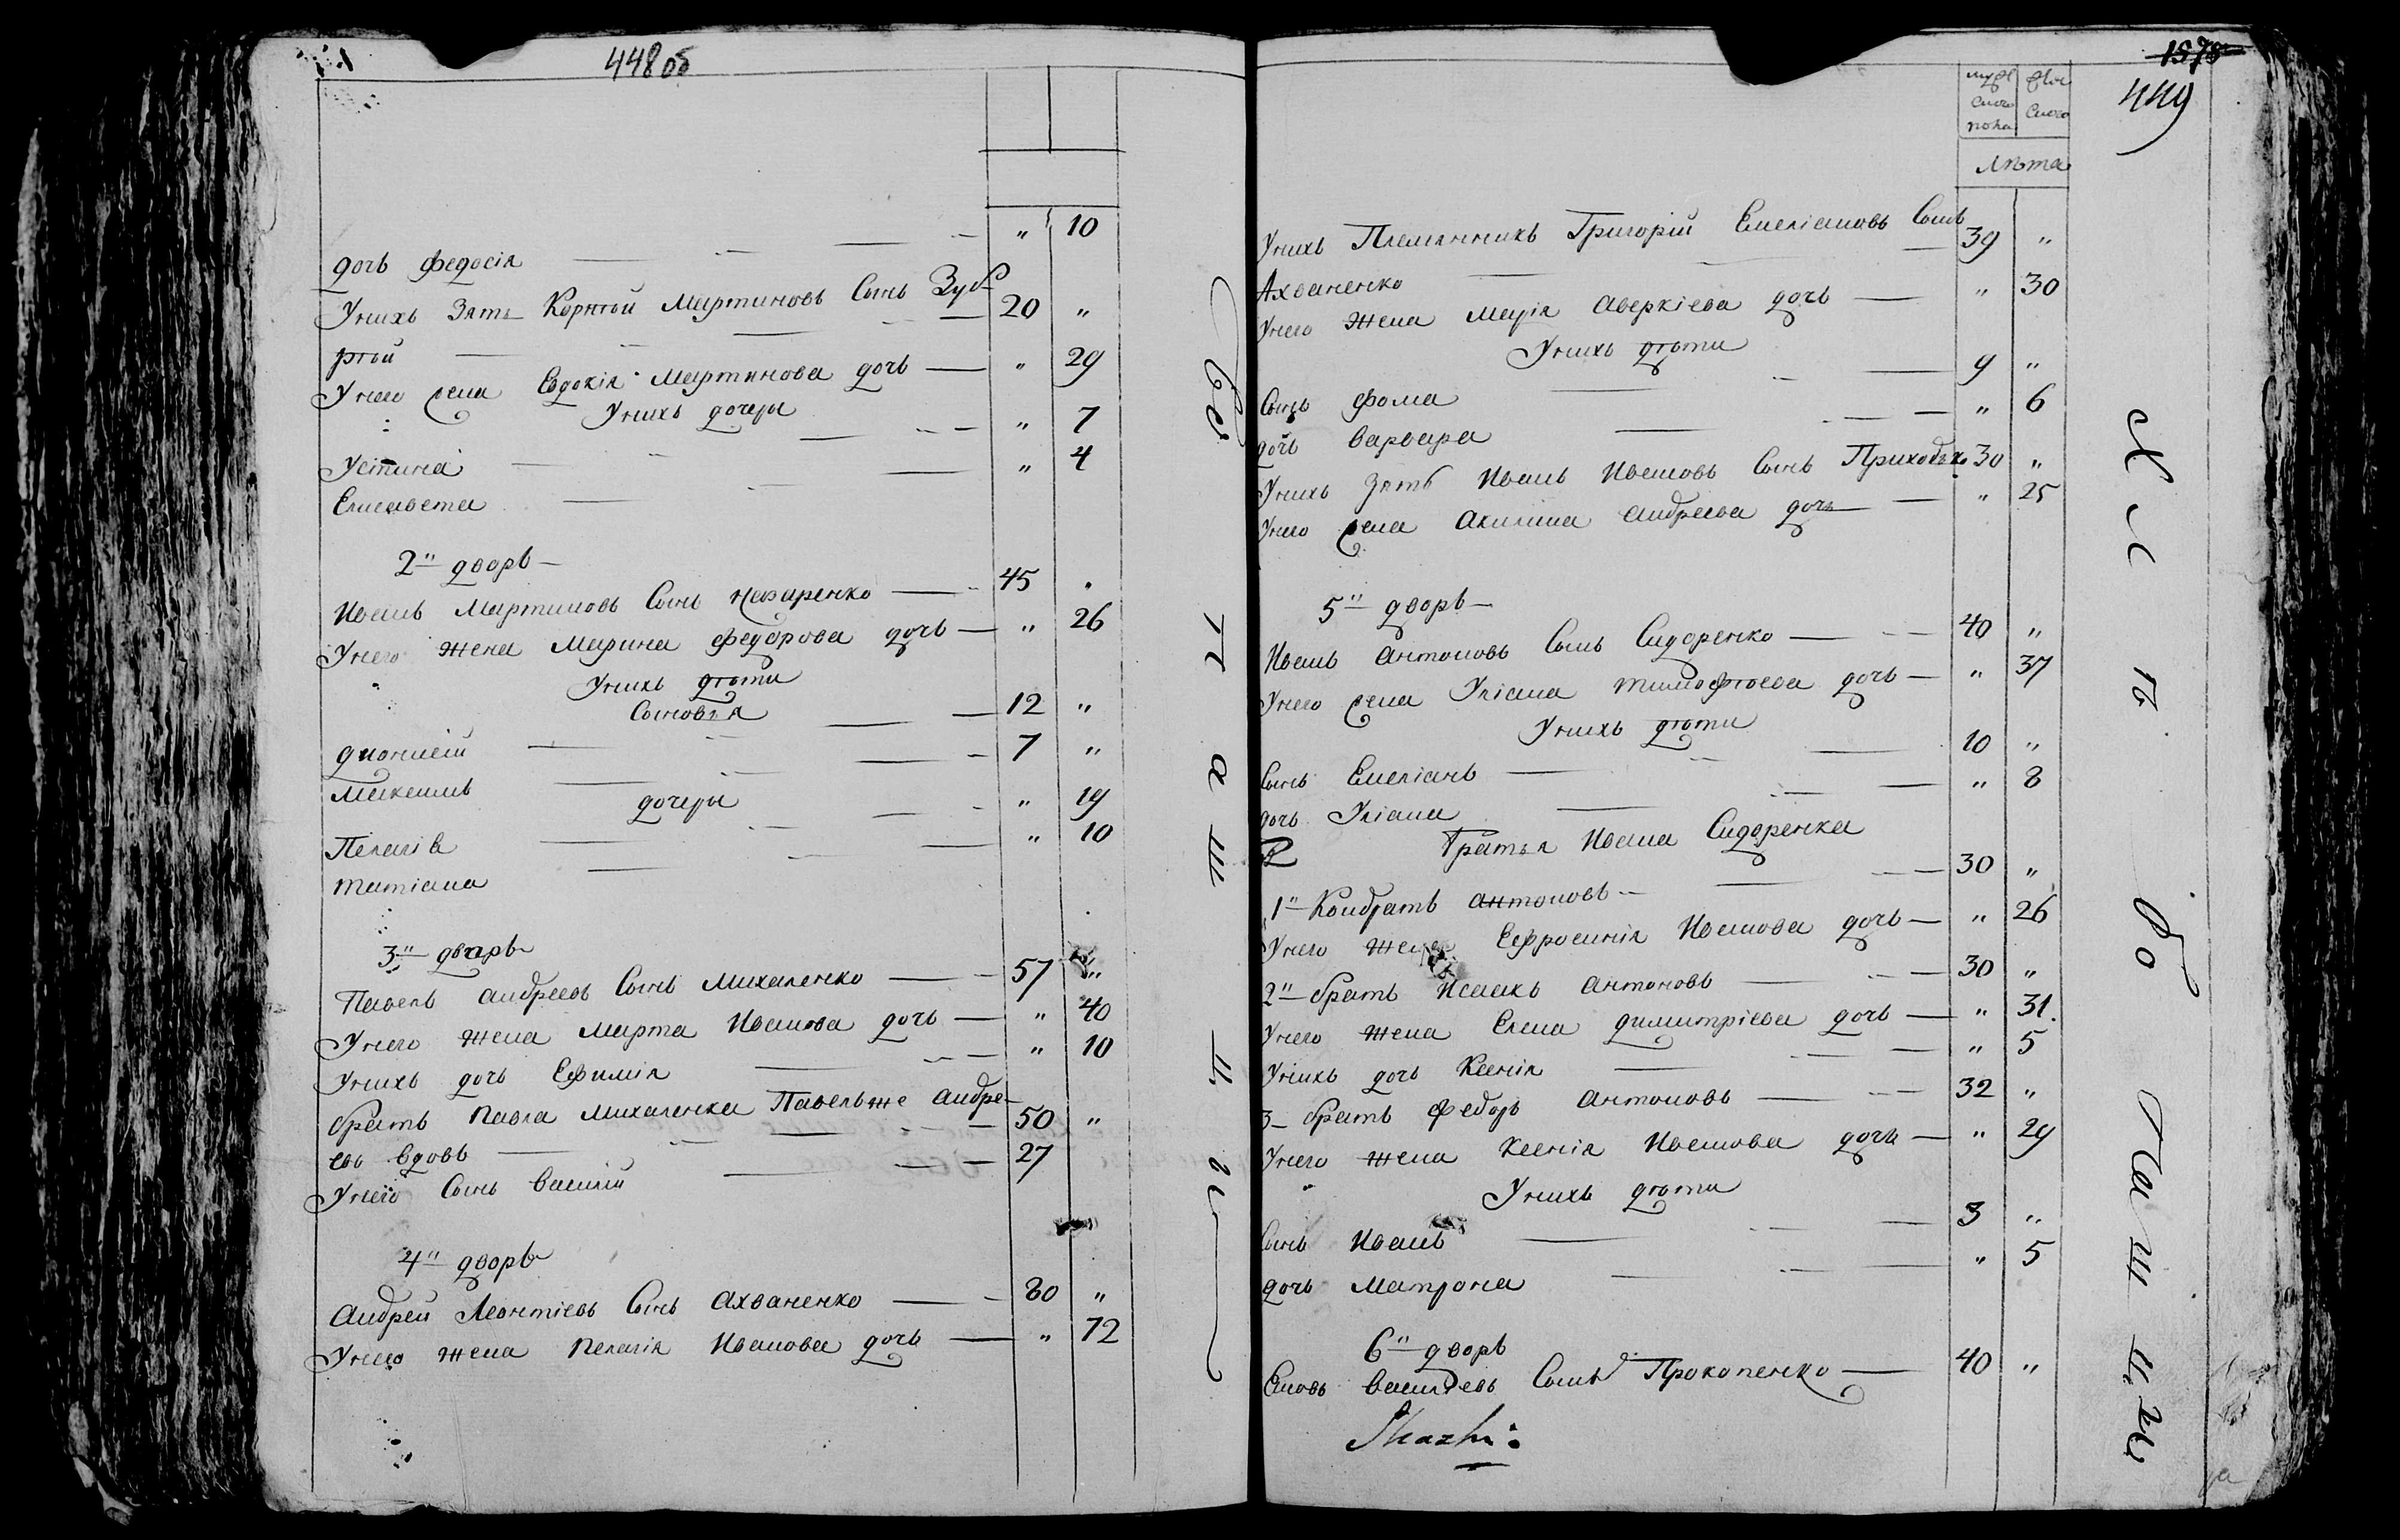 448 об
дочь Федосія " 10
У нихъ Зять Корнѣй Мартиновъ Сынъ Зуб-
рѣй 20 "
У него жена Евдокія Мартинова дочь " 29
У нихъ дочеры
Устина " 7
Елисавета " 4
2" дворъ
Иванъ Мартиновъ Сынъ Назаренко 45 "
У него жена Марина Федорова дочь " 26
У нихъ дѣти
Сыновья
Дионисій 12 "
Максимъ 7 "
дочеры
Пелагія " 19
Татіана " 10
3" дворъ
Павелъ Андреевъ Сынъ Михаленко 57 "
У него жена Марта Иванова дочь " 40
У нихъ дочь Ефимія " 10
Братъ Павла Михаленка Павелъ же Андре-
евъ вдовъ 50 "
У него Сынъ Василій 27
4" дворъ
Андрей Леонтіевъ Сынъ Ахваненко 80 "
У него жена Пелагія Иванова дочь " 72
1578
449
мужескаго пола
женскаго
Лѣта
У нихъ Племянникъ Григорій Емеліановъ Сынъ
Ахваненко 39 "
У него жена Марія Аверкіева дочь " 30
У нихъ дѣти
Сынъ Фома 9 "
дочь Варвара " 6
У нихъ зять Иванъ Ивановъ Сынъ Приходько 30 "
У него жена Акилина Андреева дочь " 25
5" дворъ
Иванъ Антоновъ Сынъ Сидоренко 40 "
У него жена Уліана Тимофѣева дочь " 37
У нихъ дѣти
Сынъ Емеліанъ 10 "
дочь Уліана " 8
Братья Ивана Сидоренка
1" Кондратъ Антоновъ 30 "
У него жена Ефросинія Иванова дочь " 26
2" братъ Исаакъ Антоновъ 30 "
У него жена Елена Димитріева дочь " 31.
У нихъ дочь Ксенія " 5
3 братъ Федоръ Антоновъ 32 "
У него жена Ксенія Иванова дочь " 29
У нихъ дѣти
Сынъ Иванъ 3 "
дочь Матрона " 5
6" дворъ
Василіевъ Сынъ Прокопенко 40 "
Хлѣбо
Паш